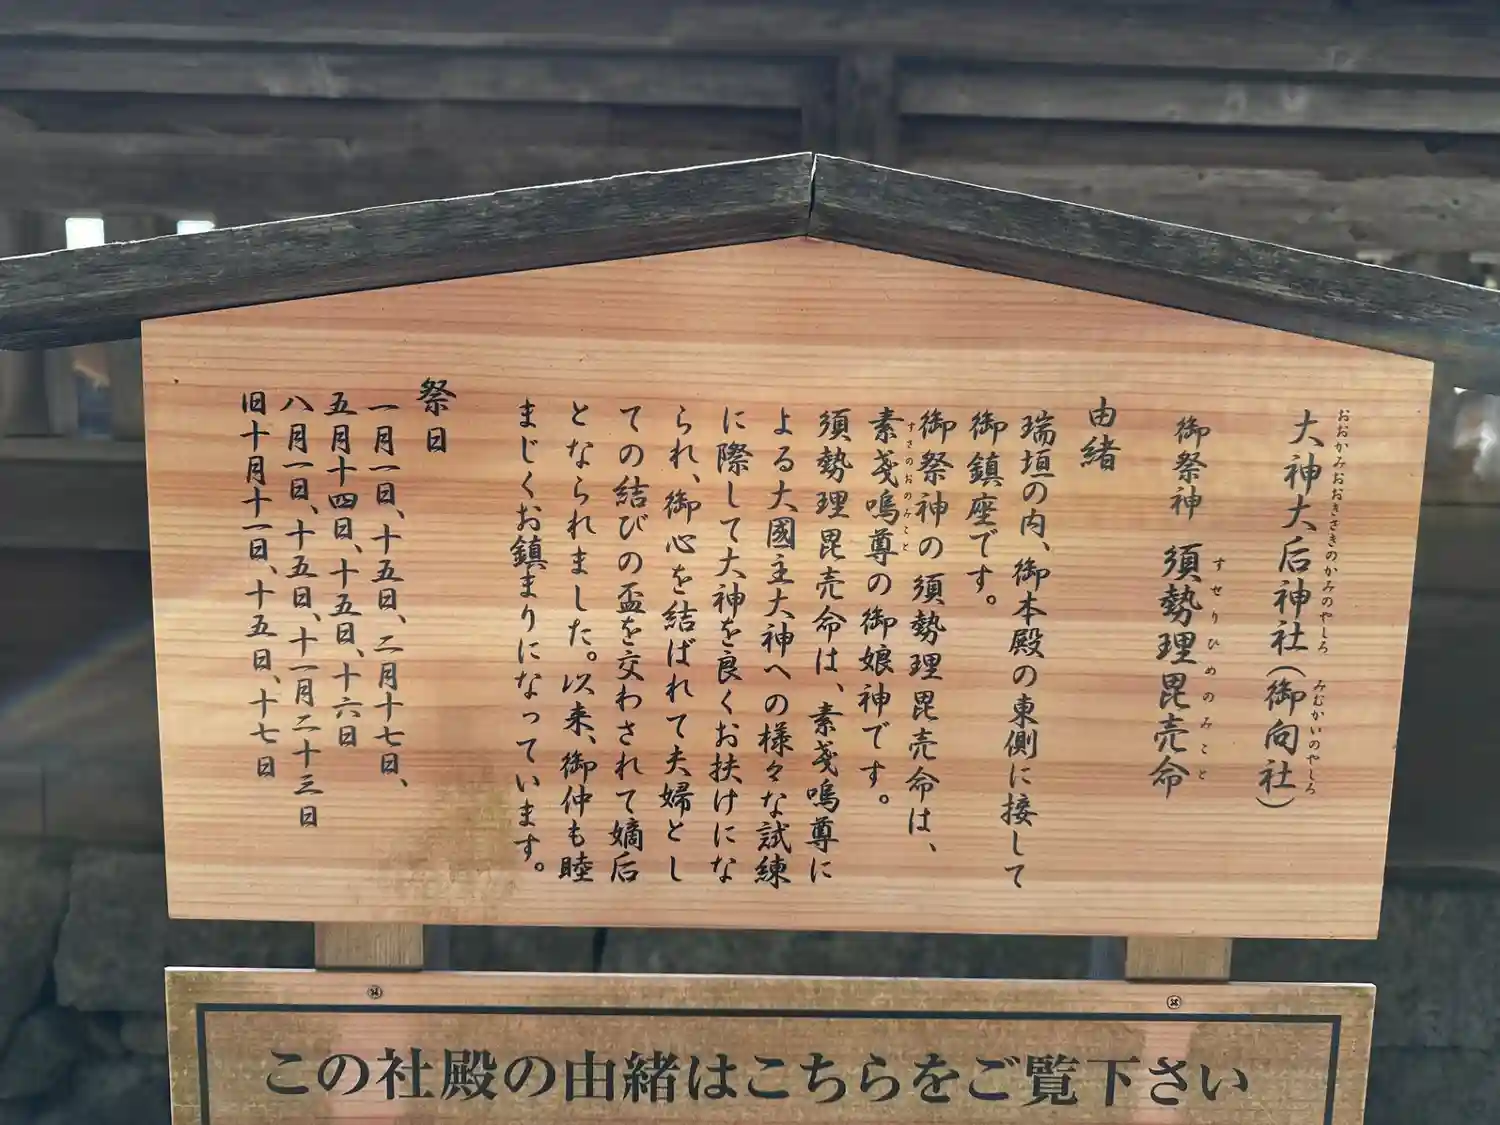 大神大后神社(御向社)
おおかみおおきさきのかみのやしろ
みむかいのやしろ
御祭神 須勢理毘売命
すせりひめのみこと
由緒
瑞垣の内、御本殿の東側に接して
御鎮座です。
御祭神の須勢理毘売命は、
素戔嗚尊の御娘神です。
すさのおのみこと
須勢理毘売命は、素戔嗚尊に
よる大國主大神への様々な試練
に際して大神を良くお扶けにな
られ、御心を結ばれて夫婦とし
ての結びの盃を交わされて嫡后
となられました。以来、御仲も睦
まじくお鎮まりになっています。
祭日
一月一日、十五日、二月十七日、
五月十四日、十五日、十六日
八月一日、十五日、十一月二十三日
旧十月十一日、十五日、十七日
この社殿の由緒はこちらをご覧下さい